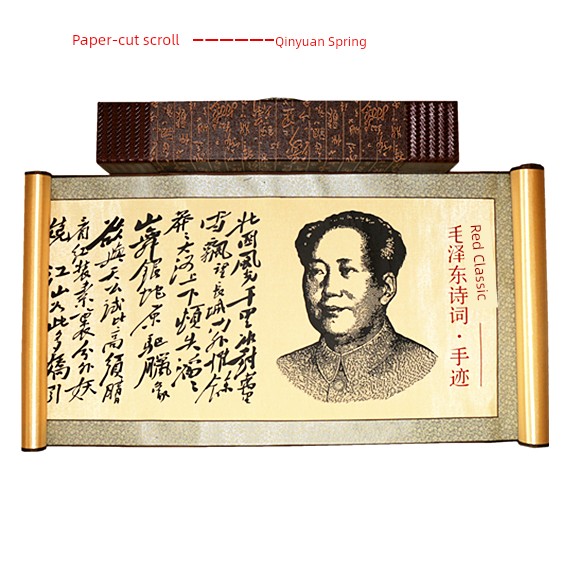 Paper-cut scroll
Qinyuan Spring
Red Classic
毛泽东诗词·手迹
北國風光千里冰封萬里
雪飄望長城内外惟餘
莽莽大河上下頓失滔滔
山舞銀蛇原馳臘象
欲與天公試比高須晴
看红装素裹分外妖
嬈江山如此多嬌引